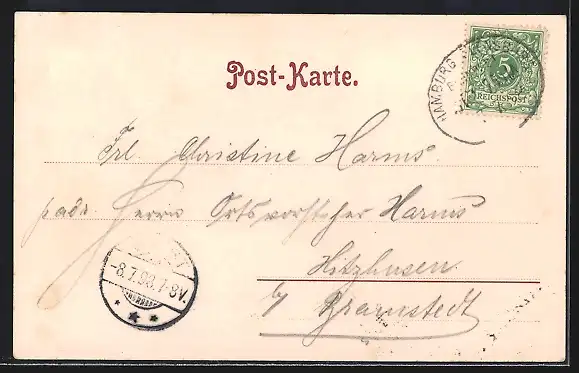 Post-Karte.
HAMBURG
5
REICHSPOST
Frl. Christine Harms
padr. Herrn Ortsvorsteher Harms
Hitzhusen
b/ Bramstedt
8.7.98.7-8V.